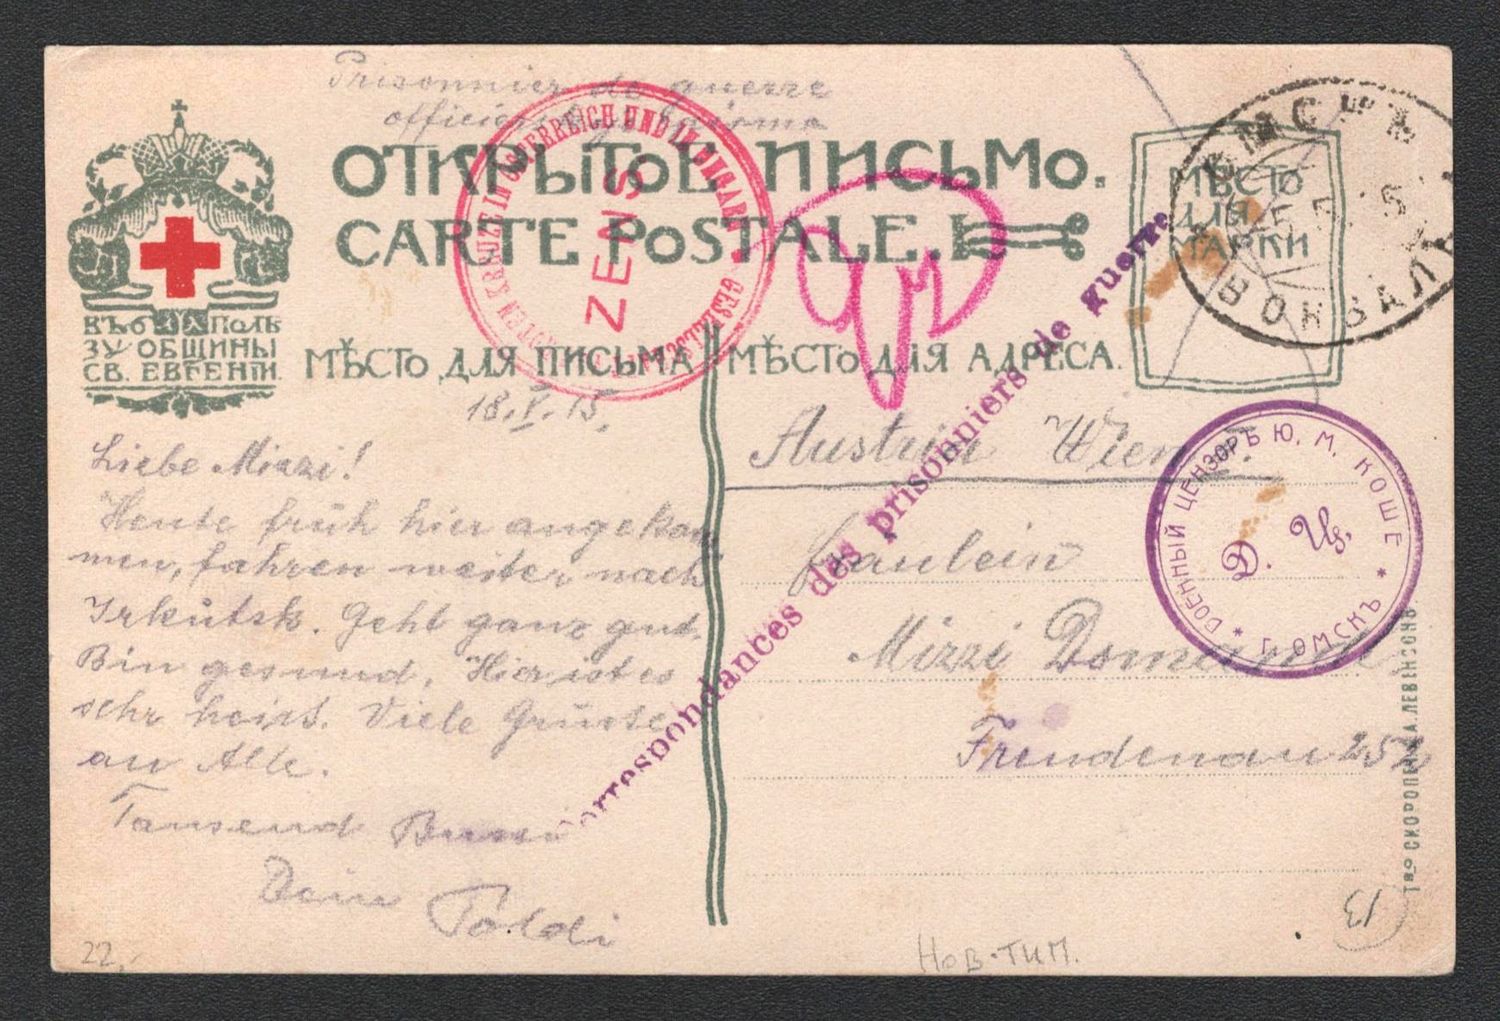 Prisonnier de guerre
officier
ОТКРЫТОЕ ПИСЬМО.
CARTE POSTALE.
ВЪ ПОЛЬ
ЗУ ОБЩИНЫ
СВ. ЕВГЕНІИ.
МѢСТО ДЛЯ ПИСЬМА
МѢСТО ДЛЯ АДРЕСА.
МѢСТО
ДЛЯ
МАРКИ
ОМСКЪ
ВОКЗАЛЪ
ROTEN KREUZE IN OESTERREICH UND IN UNGARN
ZENS
Correspondances des prisonniers de guerre
ВОЕННЫЙ ЦЕНЗОРЪ Ю. М. КОШЕ
Д. Ц.
* Г. ОМСКЪ *
18.V.15.
Liebe Mizzi!
Heute früh hier angekom
men, fahren weiter nach
Irkutsk. Geht ganz gut.
Bin gesund. Hier ist es
sehr heiss. Viele Grüsse
an Alle.
Tausend Bussi
Dein Poldi
Austria Wien
Fräulein
Mizzi
Freudenau 252
Т-во СКОРОПЕЧ. А. ЛЕВЕНСОНЪ
22.
Нов. тип.
13